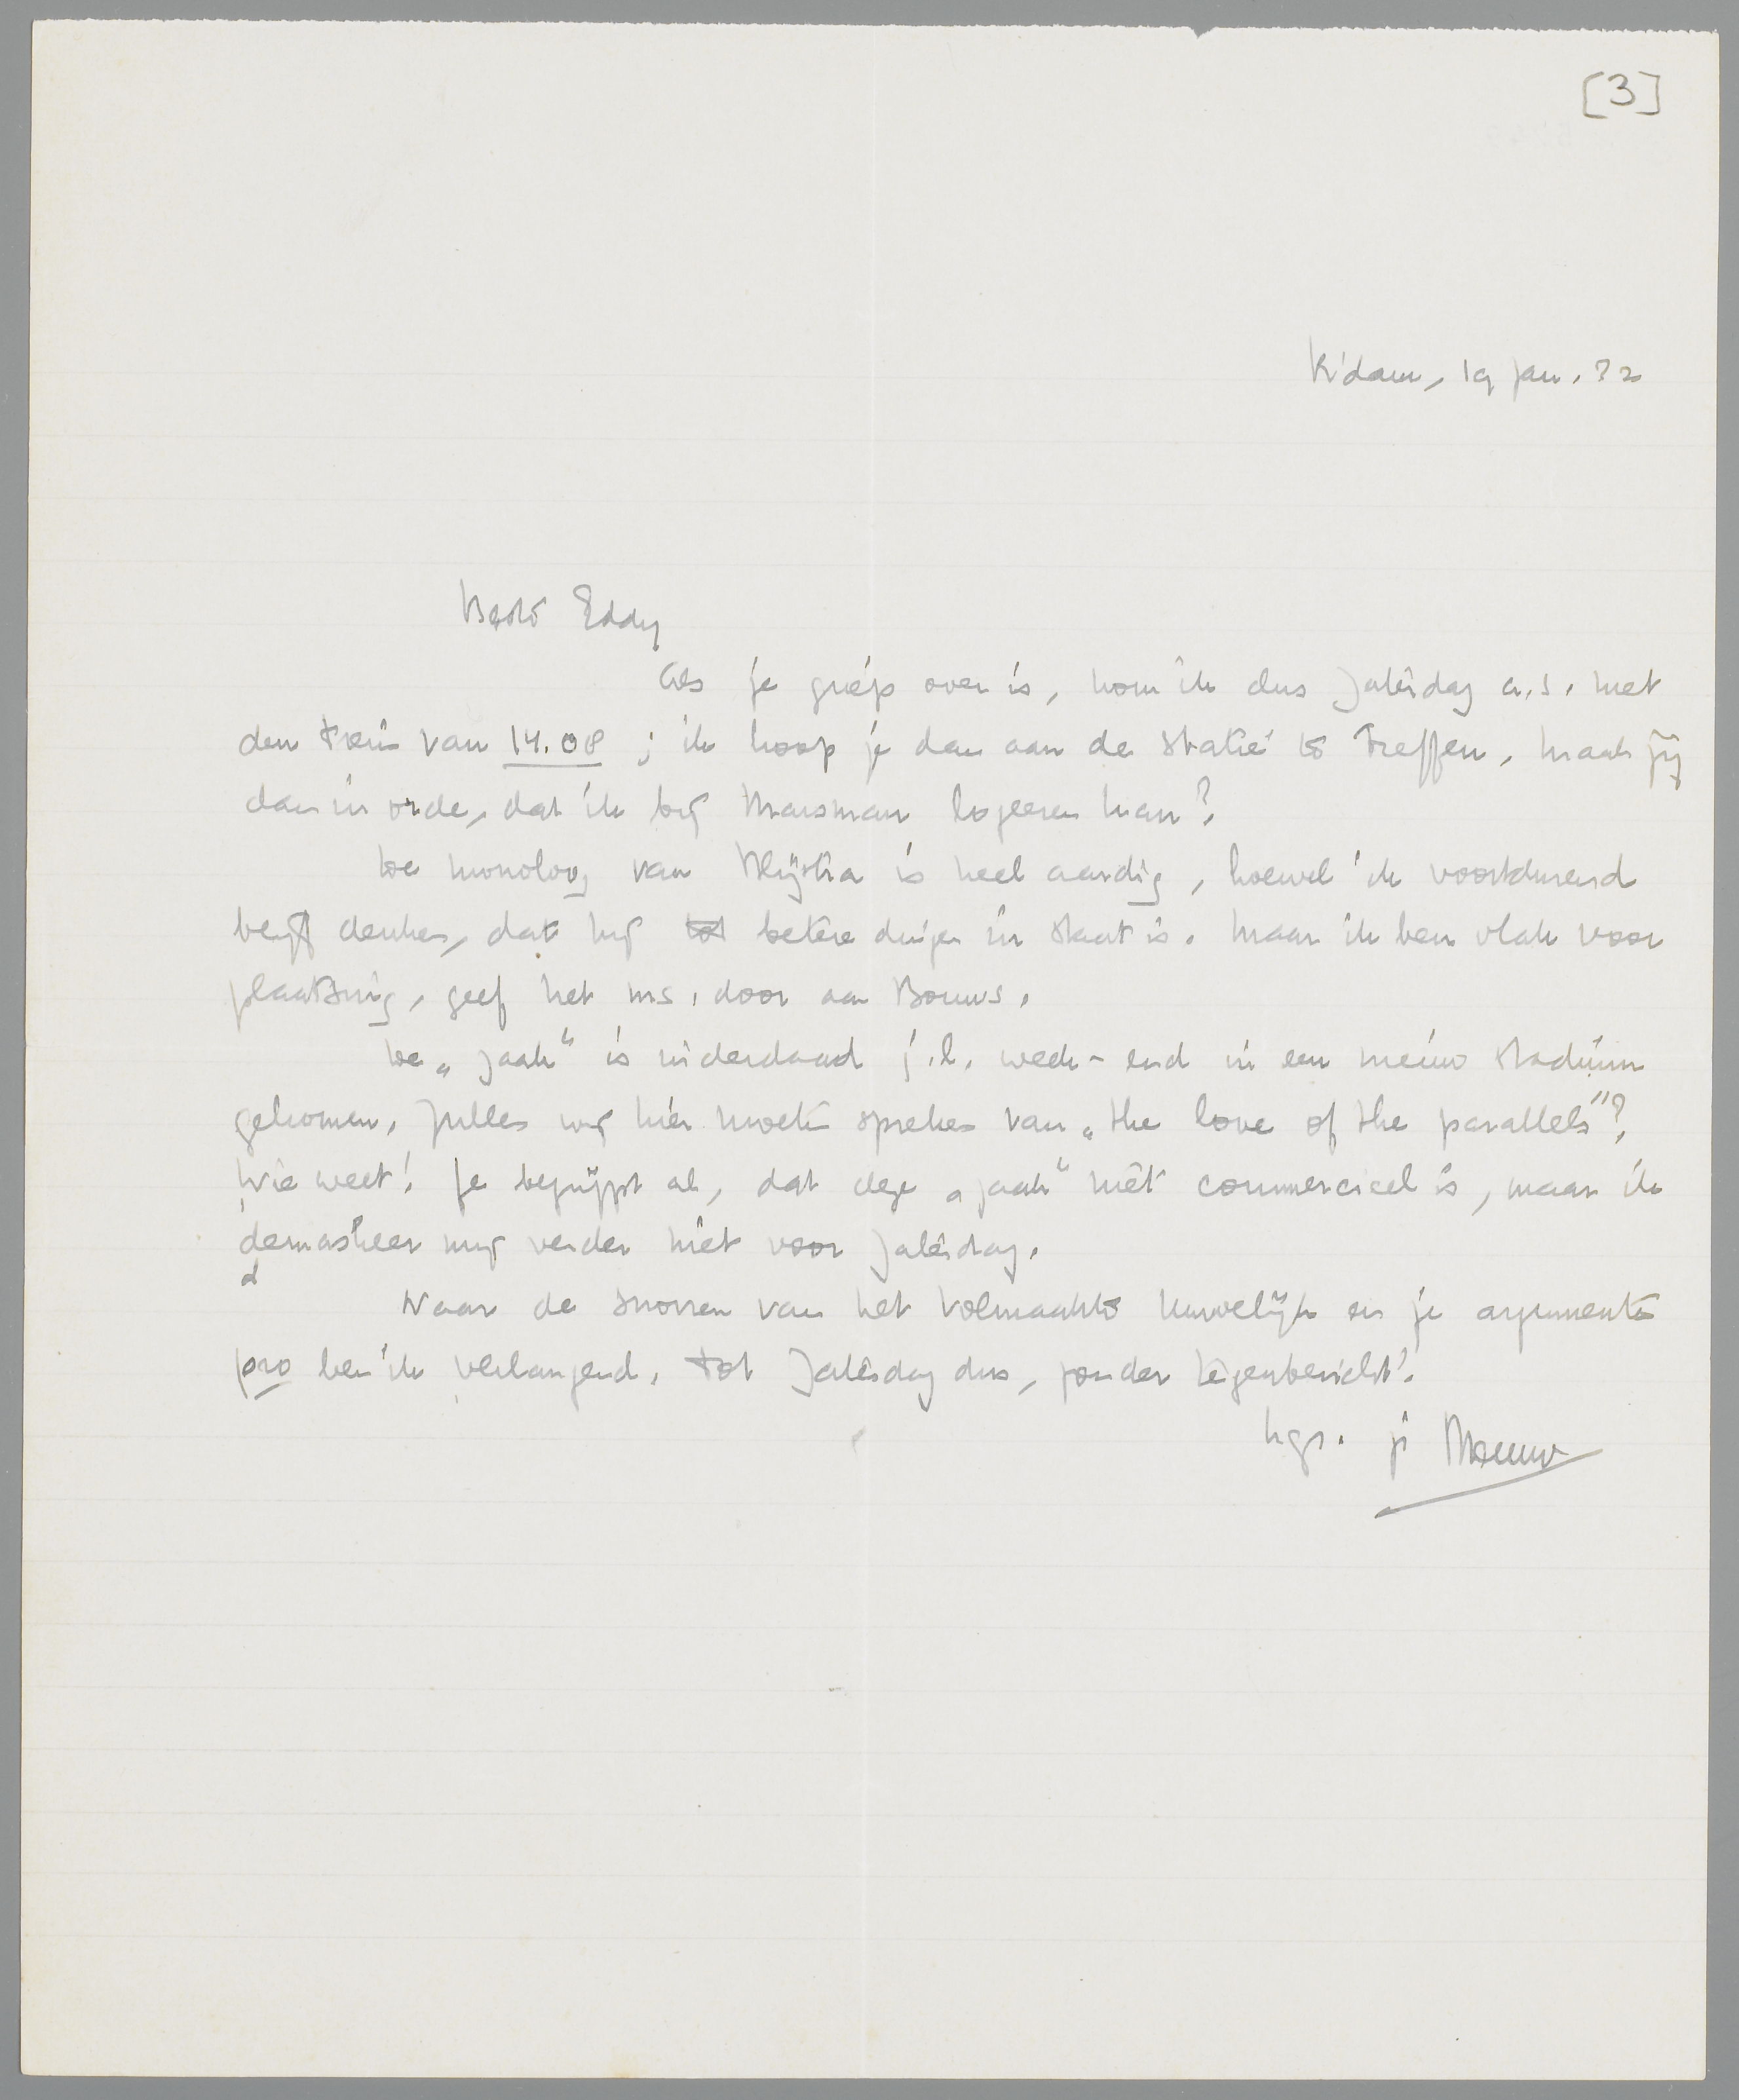 [3]
R'dam, 19 Jan. 32
Beste Eddy
Als je griep over is, kom ik dus Zaterdag a.s. met
den trein van 14.08; ik hoop je dan aan de statie te treffen. Maak jij
dan in orde, dat ik bij Marsman logeeren kan?
De monoloog van Blijstra is heel aardig, hoewel ik voortdurend
blijf denken, dat hij tot betere dingen in staat is. Maar ik ben vlak voor
plaatsing, geef het ms. door aan Bouws.
De „zaak" is inderdaad j.l. week-end in een nieuw stadium
gekomen. Zullen wij hier moeten spreken van „the love of the parallels"?
Wie weet! Je begrijpt al, dat deze „zaak" niet commercieel is, maar ik
demaskeer mij verder niet voor Zaterdag.
Naar de snorren van het Volmaakte Huwelijk en je argumenten
pro ben ik verlangend. Tot Zaterdag dus, zonder tegenbericht!
hgr. je Menno